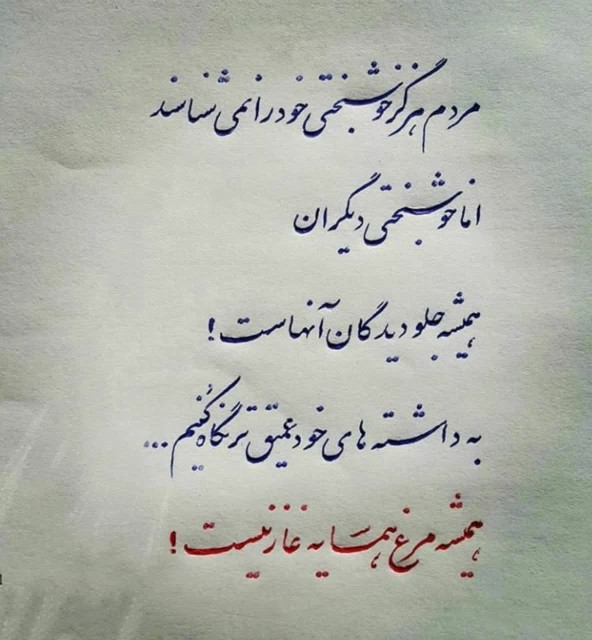 مردم هرگز خوشبختی خود را نمی شناسند
اما خوشبختی دیگران
همیشه جلو دیدگان آنهاست !
به داشته های خود عمیق تر نگاه کنیم ...
همیشه مرغ همسایه غاز نیست !